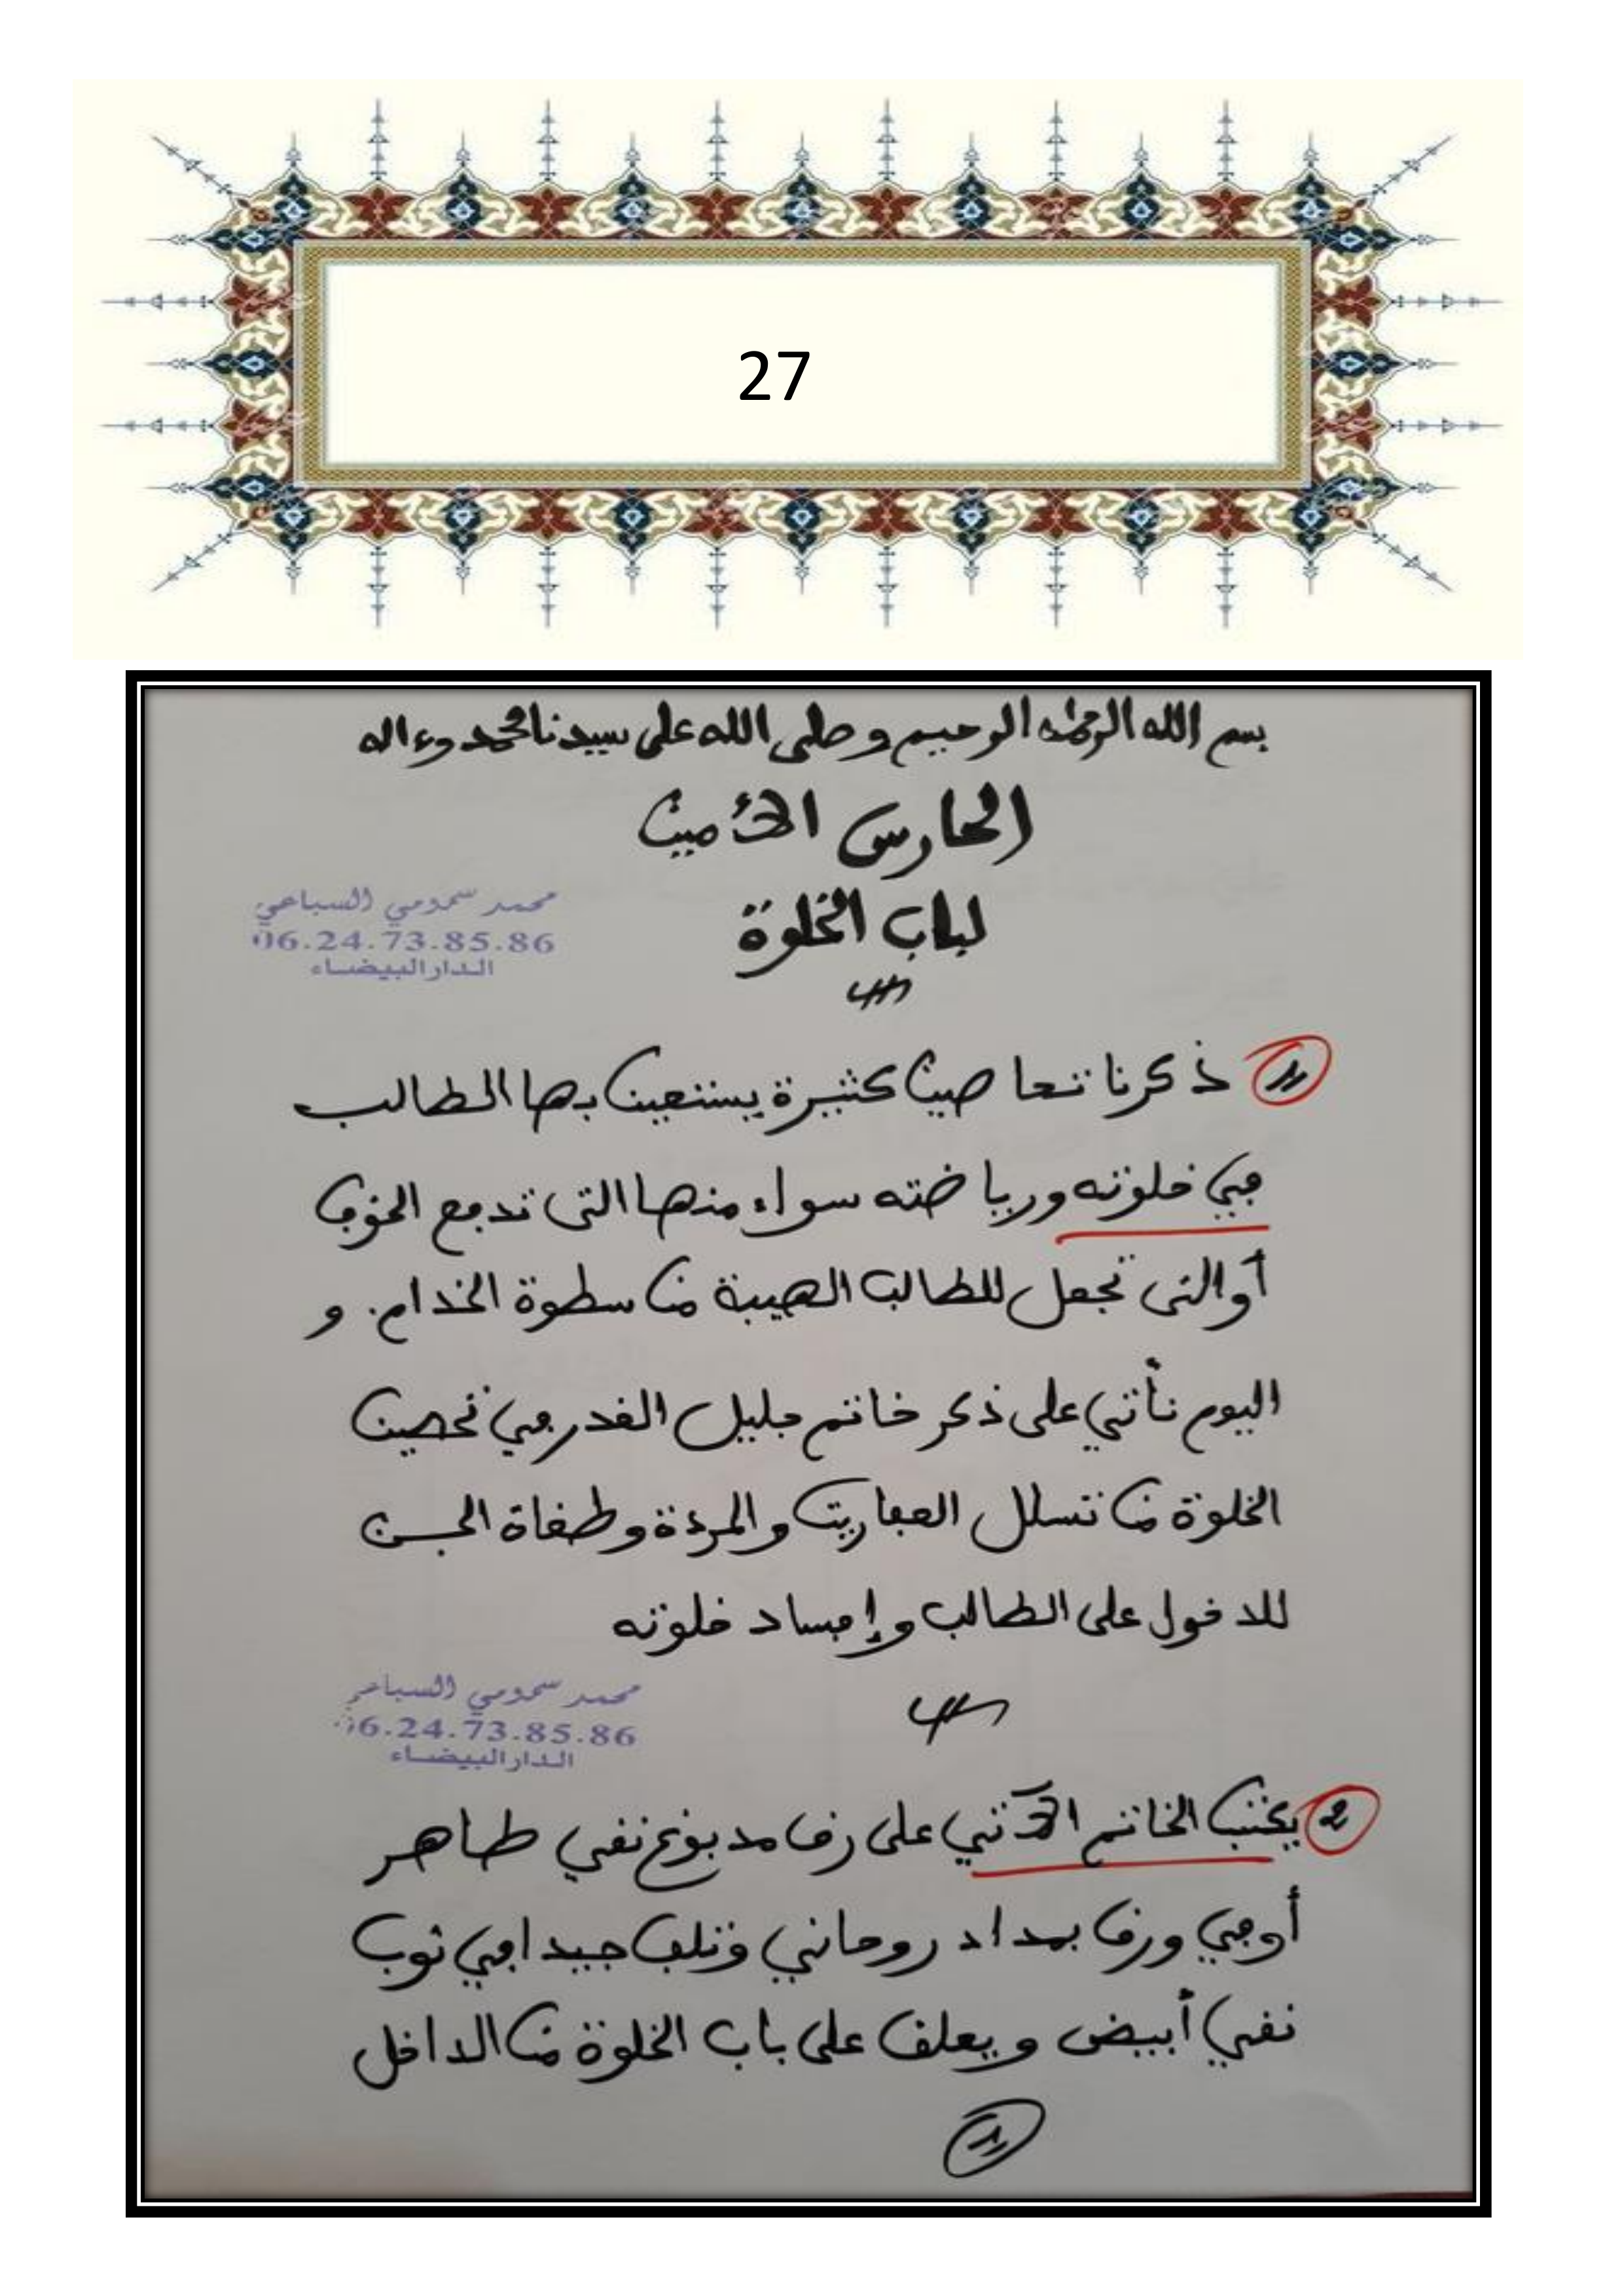 27
بسم الله الرحمن الرحيم وصلى الله على سيدنا محمد وءاله
الحارس الأمين
لباب الخلوة
محمد سمومي السباعي
06.24.73.85.86
الدار البيضاء
1 ذكرنا تحاصين كثيرة يستعين بها الطالب
في خلوته ورياضته سواء منها التى تدفع الخوف
أو التى تجعل للطالب الهيبة من سطوة الخدام. و
اليوم نأتي على ذكر خاتم جليل القدر في تحصين
الخلوة من تسلل العفاريت والمردة وطغاة الجن
للدخول على الطالب وإفساد خلوته
محمد سمومي السباعي
06.24.73.85.86
الدار البيضاء
2 يكتب الخاتم الآتي على رق مدبوغ نقي طاهر
أو في ورق بمداد روحاني وتلف جيدا في ثوب
نقي أبيض ويعلق على باب الخلوة من الداخل
1